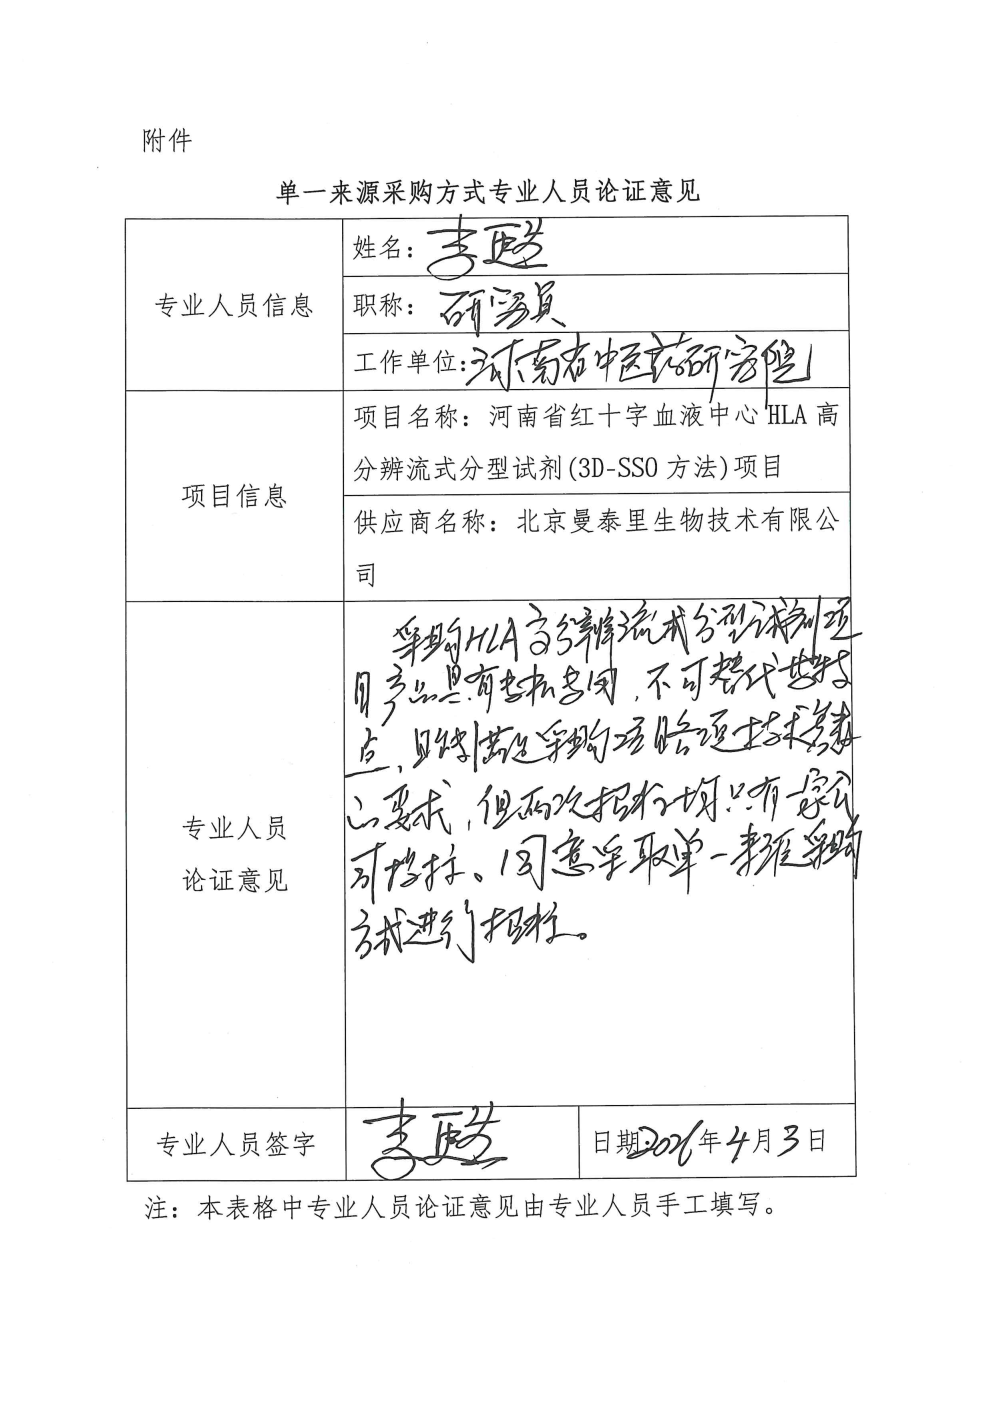 附件
单一来源采购方式专业人员论证意见
专业人员信息
姓名：李
职称：研究员
工作单位：河南省中医药研究院
项目信息
项目名称：河南省红十字血液中心 HLA 高
分辨流式分型试剂(3D-SSO 方法)项目
供应商名称：北京曼泰里生物技术有限公
司
专业人员
论证意见
采购HLA高分辨流式分型试剂项
目产品具有专机专用，不可替代等特
点，且 满足采购项目各项技术参数
的要求，但两次招标均只有一家公
司投标。同意采取单一来源采购
方式进行招标。
专业人员签字
李
日期:2026年4月3日
注：本表格中专业人员论证意见由专业人员手工填写。